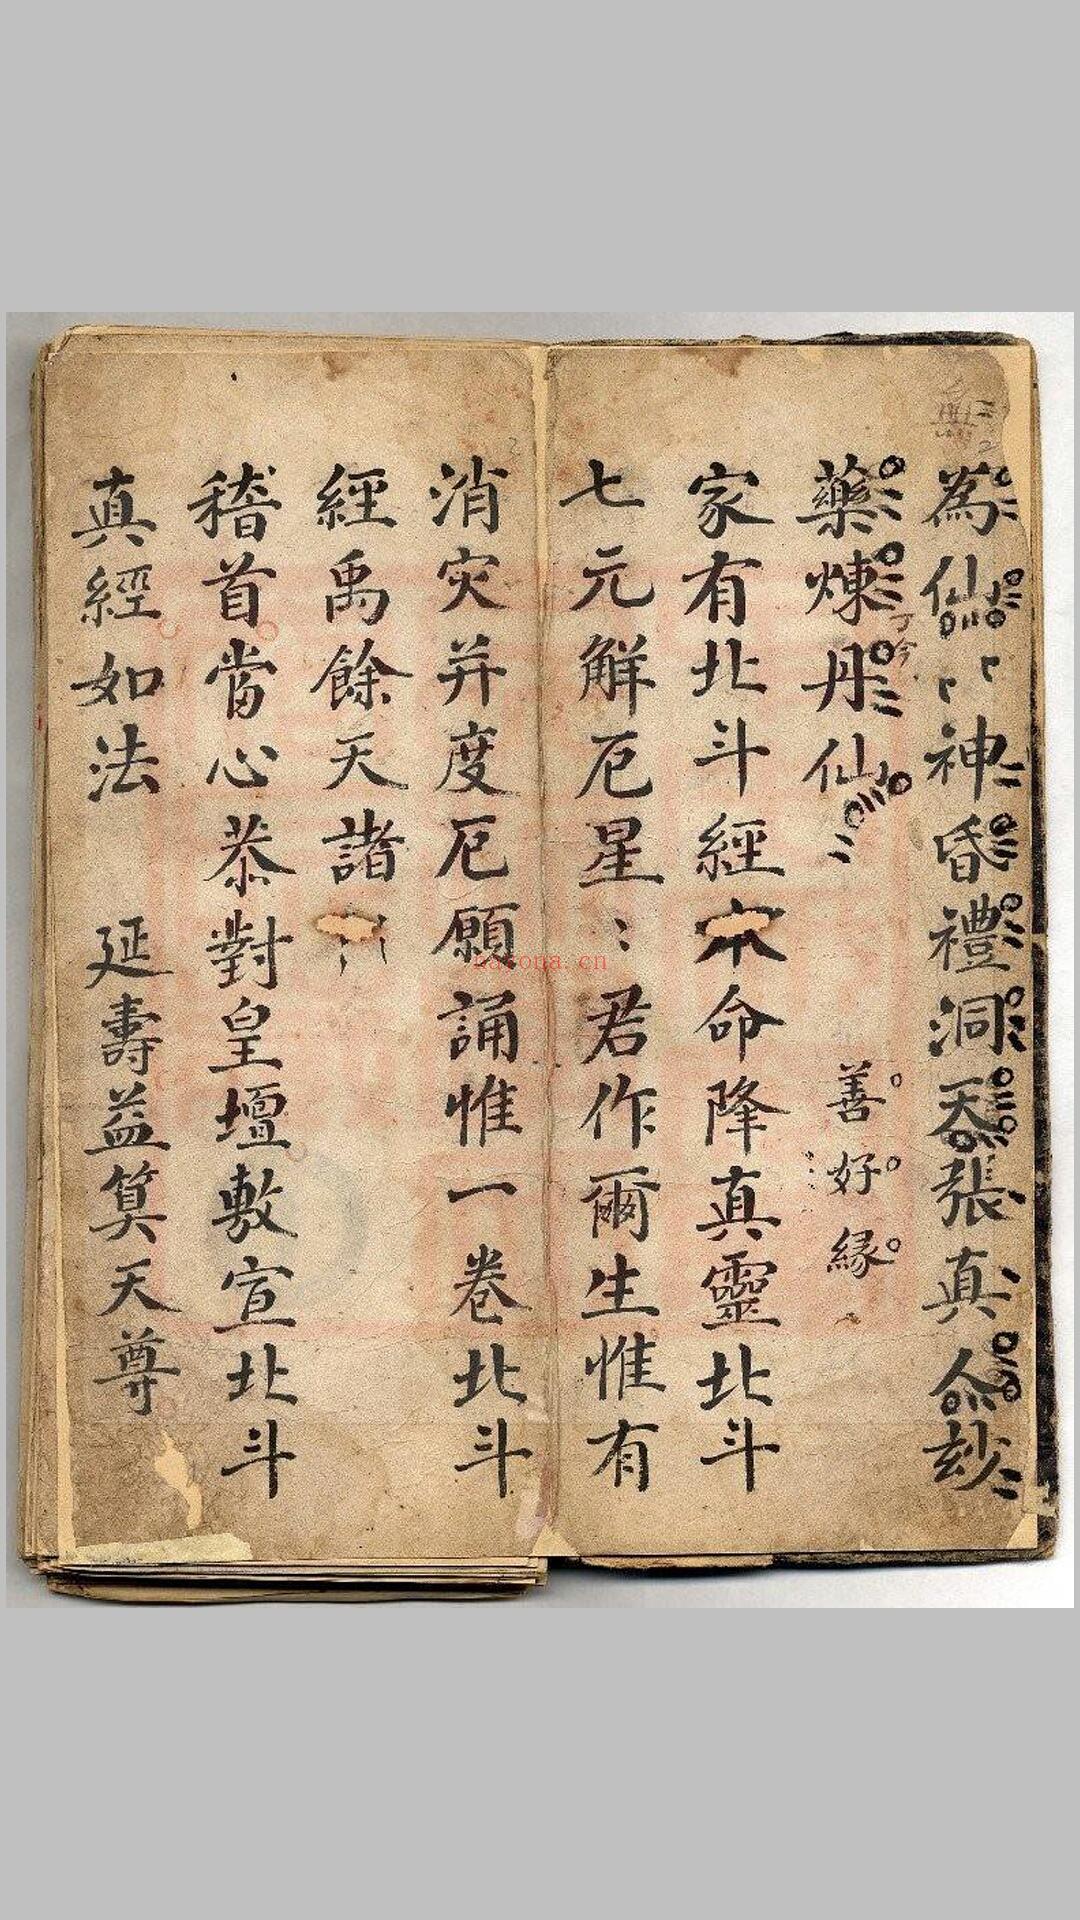 為仙⺀神昏禮洞天張真人玅
藥煉丹仙
善好緣
家有北斗經本命降真靈北斗
七元解厄星⺀君作爾生惟有
消灾并度厄願誦惟一卷北斗
經禹餘天諸
稽首當心恭對皇壇敷宣北斗
真經如法 延壽益算天尊
narona.cn